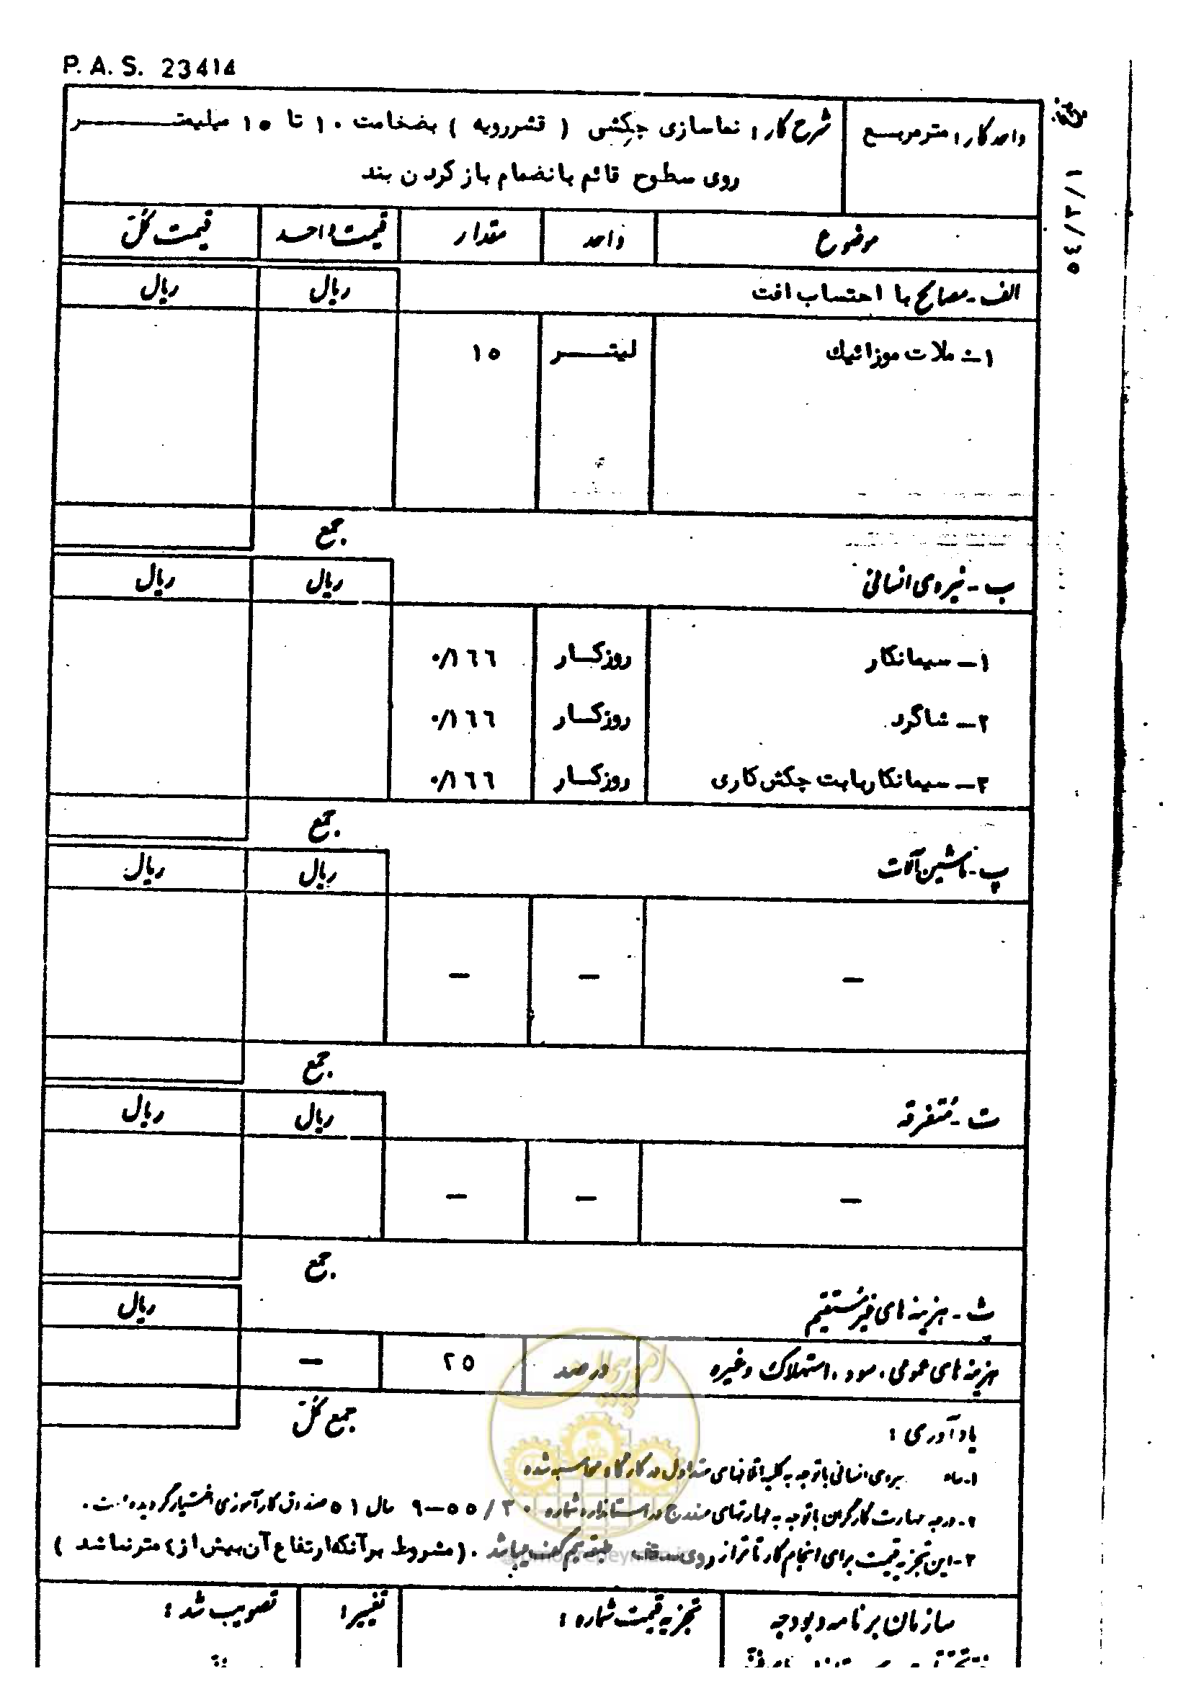 P. A. S. 23414
واحد کار : مترمربـع
شرح کار : نماسازی چکشی ( قشررویه ) بضخامت ۱۰ تا ۱۵ میلیمتـــــر
روی سطوح قائم بانضمام باز کردن بند
۵٤/۳/۱
موضوع واحد مقدار قیمت واحـد قیمت کل
الف - مصالح با احتساب افت ریال ریال
۱ - ملات موزائیك لیتـــر ۱۵
جمع
ب - نیروی انسانی ریال ریال
۱ - سیمانکار روزکــار ۰/۱٦٦
۲ - شاگرد روزکــار ۰/۱٦٦
۳ - سیمانکار بابت چکش کاری روزکــار ۰/۱٦٦
جمع
پ - ماشین آلات ریال ریال
— — —
جمع
ت - متفرقه ریال ریال
— — —
جمع
ث - هزینه های غیرمستقیم ریال
هزینه های عمومی ، سود ، استهلاک وغیره درصد ۲۵ —
جمع کل
یادآوری :
نیروی انسانی باتوجه به کلیه اتلافهای متداول در کارگاه محاسبه شده
۲ - درجه مهارت کارگران باتوجه به مهارتهای مندرج در استاندارد شماره ۳۰ / ۵۵ - ۹ سال ۵۱ صندوق کارآموزی اختیار گردیده است .
۳ - این تجزیه قیمت برای انجام کار تا تراز روی سقف طبقه هم کف میباشد . ( مشروط بر آنکه ارتفاع آن بیش از ٤ متر نباشد )
سازمان برنامه و بودجه تجزیه قیمت شماره : تغییر : تصویب شد :
امور پیمان